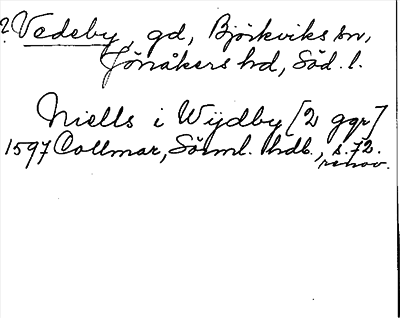 ? Vedeby, gd, Björkviks sn,
Jönåkers hd, Söd. l.
Niells i Wÿdby [2 ggr]
1597 Collmar, Sörml. hdl., s. 72.
renov.